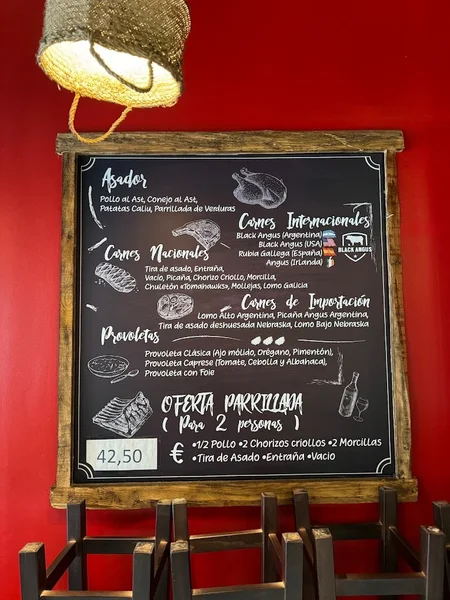 Asador
Pollo al Ast, Conejo al Ast,
Patatas Caliu, Parrillada de Verduras
Carnes Internacionales
Black Angus (Argentina)
Black Angus (USA)
Rubia Gallega (España)
Angus (Irlanda)
BLACK ANGUS
Carnes Nacionales
Tira de asado, Entraña,
Vacio, Picaña, Chorizo Criollo, Morcilla,
Chuletón «Tomahawk», Mollejas, Lomo Galicia
Carnes de Importación
Lomo Alto Argentina, Picaña Angus Argentina,
Tira de asado deshuesada Nebraska, Lomo Bajo Nebraska
Provoletas
Provoleta Clásica (Ajo mólido, Orégano, Pimentón),
Provoleta Caprese (Tomate, Cebolla y Albahaca),
Provoleta con Foie
OFERTA PARRILLADA
( Para 2 personas )
42,50 €
•1/2 Pollo •2 Chorizos criollos •2 Morcillas
•Tira de Asado •Entraña •Vacio